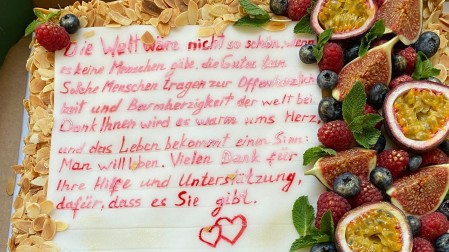 Die Welt wäre nicht so schön, wenn
es keine Menschen gäbe, die Gutes tun.
Solche Menschen tragen zur Offenherzlich
keit und Barmherzigkeit der Welt bei.
Dank Ihnen wird es warm ums Herz,
und das Leben bekommt einen Sinn:
Man will leben. Vielen Dank für
Ihre Hilfe und Unterstützung,
dafür, dass es Sie gibt.